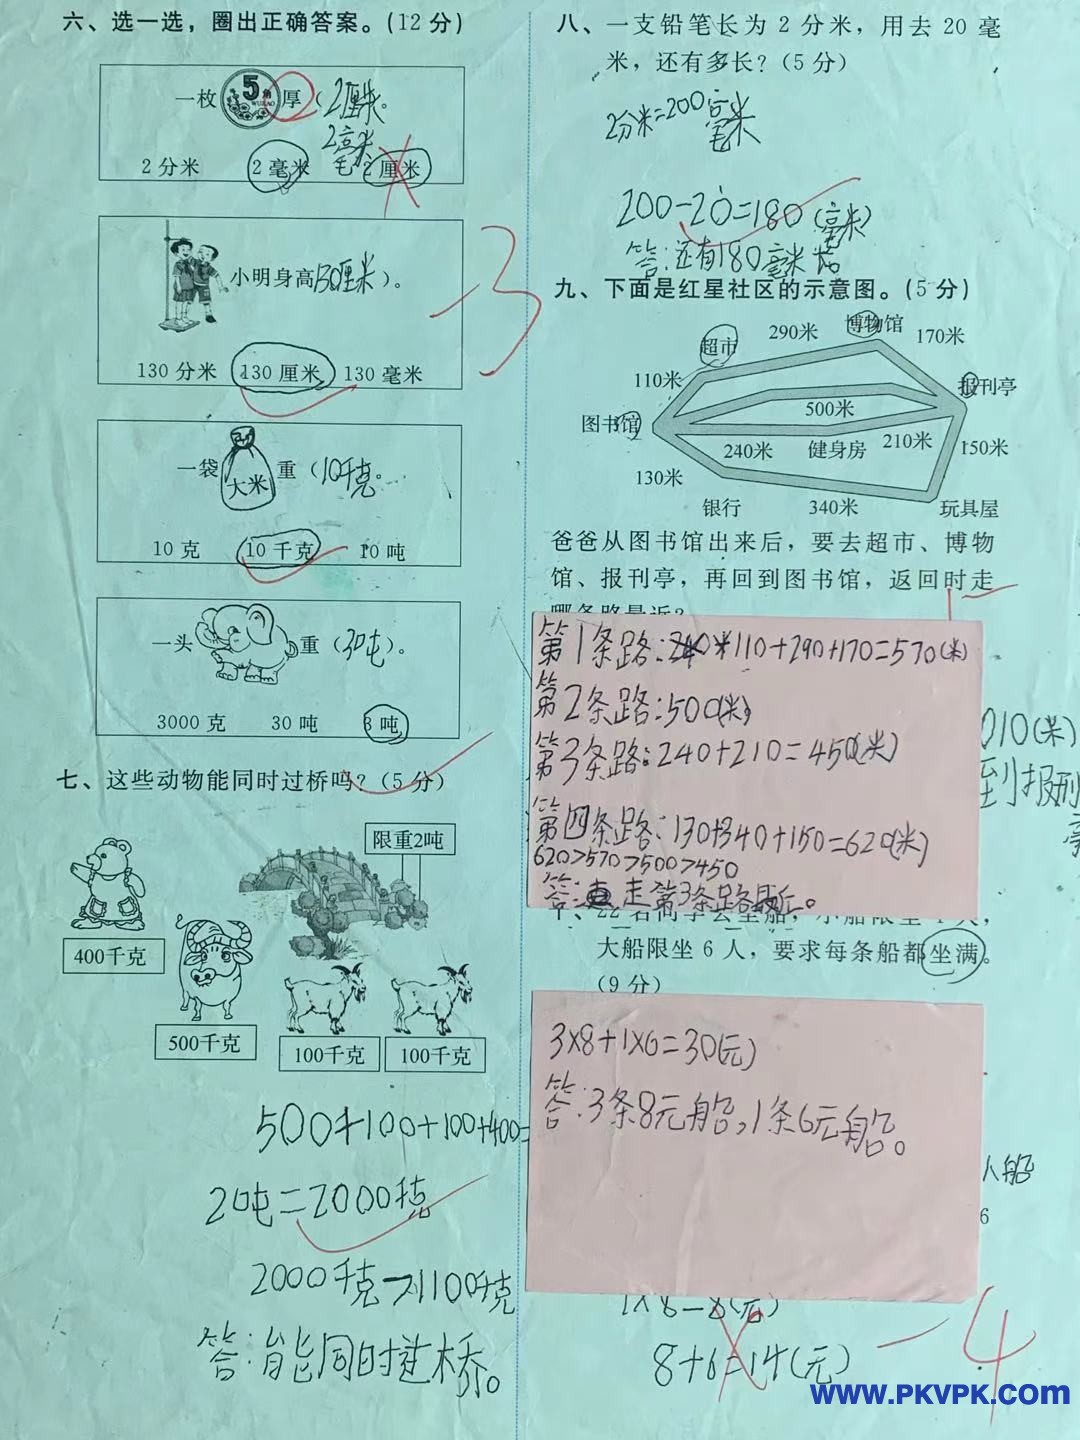 六、选一选，圈出正确答案。（12分）
一枚 5角 WUJIAO 厚（2厘米。
2毫米
2分米 2毫米 2厘米
-3
小明身高130厘米）。
130分米 130厘米 130毫米
一袋 大米 重（10千克。
10克 10千克 10吨
一头 重（30吨）。
3000克 30吨 3吨
七、这些动物能同时过桥吗？（5分）
限重2吨
400千克
500千克
100千克 100千克
500+100+100+400=
2吨=2000千克
2000千克>1100千克
答：能同时过桥。
八、一支铅笔长为2分米，用去20毫
米，还有多长？（5分）
2分米=200毫米
200-20=180(毫米)
答：还有180毫米长
九、下面是红星社区的示意图。（5分）
290米 博物馆 170米
超市
110米 报刊亭
500米
图书馆
240米 健身房 210米 150米
130米
银行 340米 玩具屋
爸爸从图书馆出来后，要去超市、博物
馆、报刊亭，再回到图书馆，返回时走
哪条路最近？
第1条路：110+290+170=570(米)
第2条路：500(米)
第3条路：240+210=450(米)
第四条路：130+340+150=620(米)
620>570>500>450
答：走第3条路最近。
010(米)
到报刊
亭
大船限坐6人，要求每条船都坐满。
（9分）
3×8+1×6=30(元)
答：3条8元船，1条6元船。
人船
6
1×8=8(元)
8+6=14(元)
-4
www.PKVPK.com